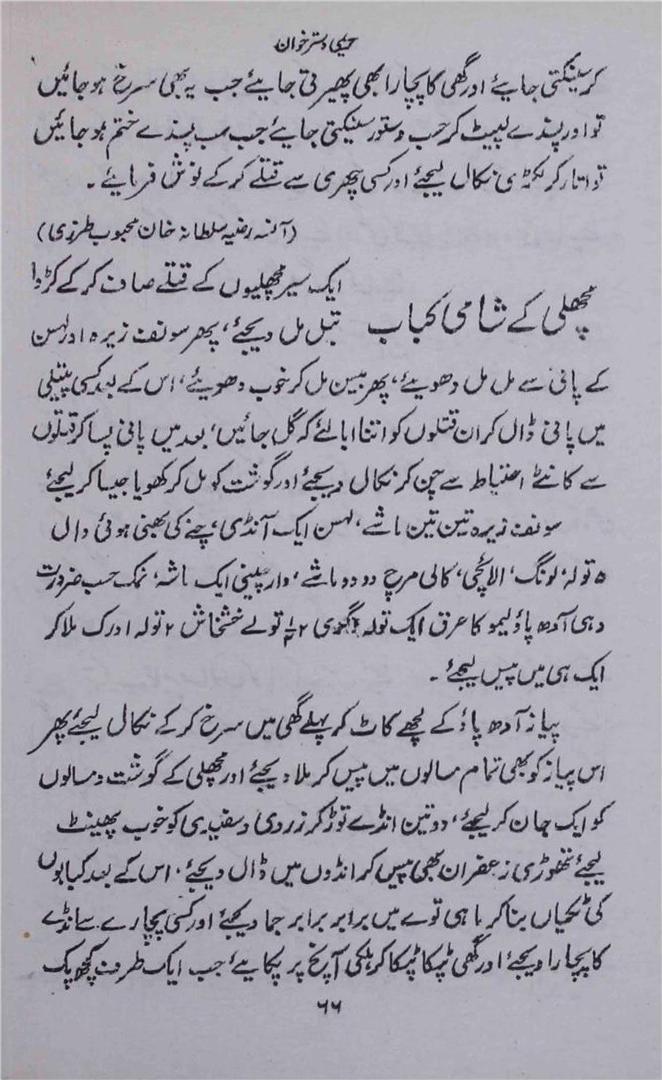 حریمی دسترخوان
کر سینکتی جایئے اور گھی کا پچارا بھی پھیرتی جایئے جب یہ بھی سرخ ہو جائیں
تو اور پسندے لپیٹ کر حسب دستور سینکتی جایئے جب سب پسندے ختم ہو جائیں
تو اتار کر لکڑی نکال لیجئے اور کسی چھری سے قتلے کر کے نوش فرمایئے ۔
(آنسہ رضیہ سلطانہ خان محبوب طرزی)
مچھلی کے شامی کباب
ایک سیر مچھلیوں کے قتلے صاف کر کے کڑوا
تیل مل دیجئے، پھر سونف زیرہ اور لہسن
کے پانی سے مل مل دھویئے، پھر بیسن مل کر خوب دھویئے، اس کے بعد کسی پتیلی
میں پانی ڈال کر ان قتلوں کو اتنا ابالئے کہ گل جائیں، بعد میں پانی پسا کر قتلوں
سے کانٹے احتیاط سے چن کر نکال دیجئے اور گوشت کو مل کر کھویا جیسا کر لیجئے
سونف زیرہ تین تین ماشے، لہسن ایک آنڈی، چنے کی بھنی ہوئی دال
۵ تولہ، لونگ، الائچی، کالی مرچ دو دو ماشے، دار چینی ایک ماشہ، نمک حسب ضرورت
دہی آدھ پاؤ لیمو کا عرق ایک تولہ ۲ تولے خشخاش ۲ تولہ ادرک ملا کر
ایک ہی میں پیس لیجئے ۔
پیاز آدھ پاؤ کے لچھے کاٹ کر پہلے گھی میں سرخ کر کے نکال لیجئے پھر
اس پیاز کو بھی تمام مسالوں میں پیس کر ملا دیجئے اور مچھلی کے گوشت و مسالوں
کو ایک جان کر لیجئے، دو تین انڈے توڑ کر زردی و سفیدی کو خوب پھینٹ
لیجئے تھوڑی زعفران بھی پیس کر انڈوں میں ڈال دیجئے ۔ اس کے بعد کبابوں
کی ٹکیاں بنا کر ماہی توے میں برابر برابر جما دیجئے اور کسی پچارے سے انڈے
کا پچارا دیجئے اور گھی ٹپکا ٹپکا کر ہلکی آنچ پر پکایئے جب ایک طرف کچھ پک
۶۶